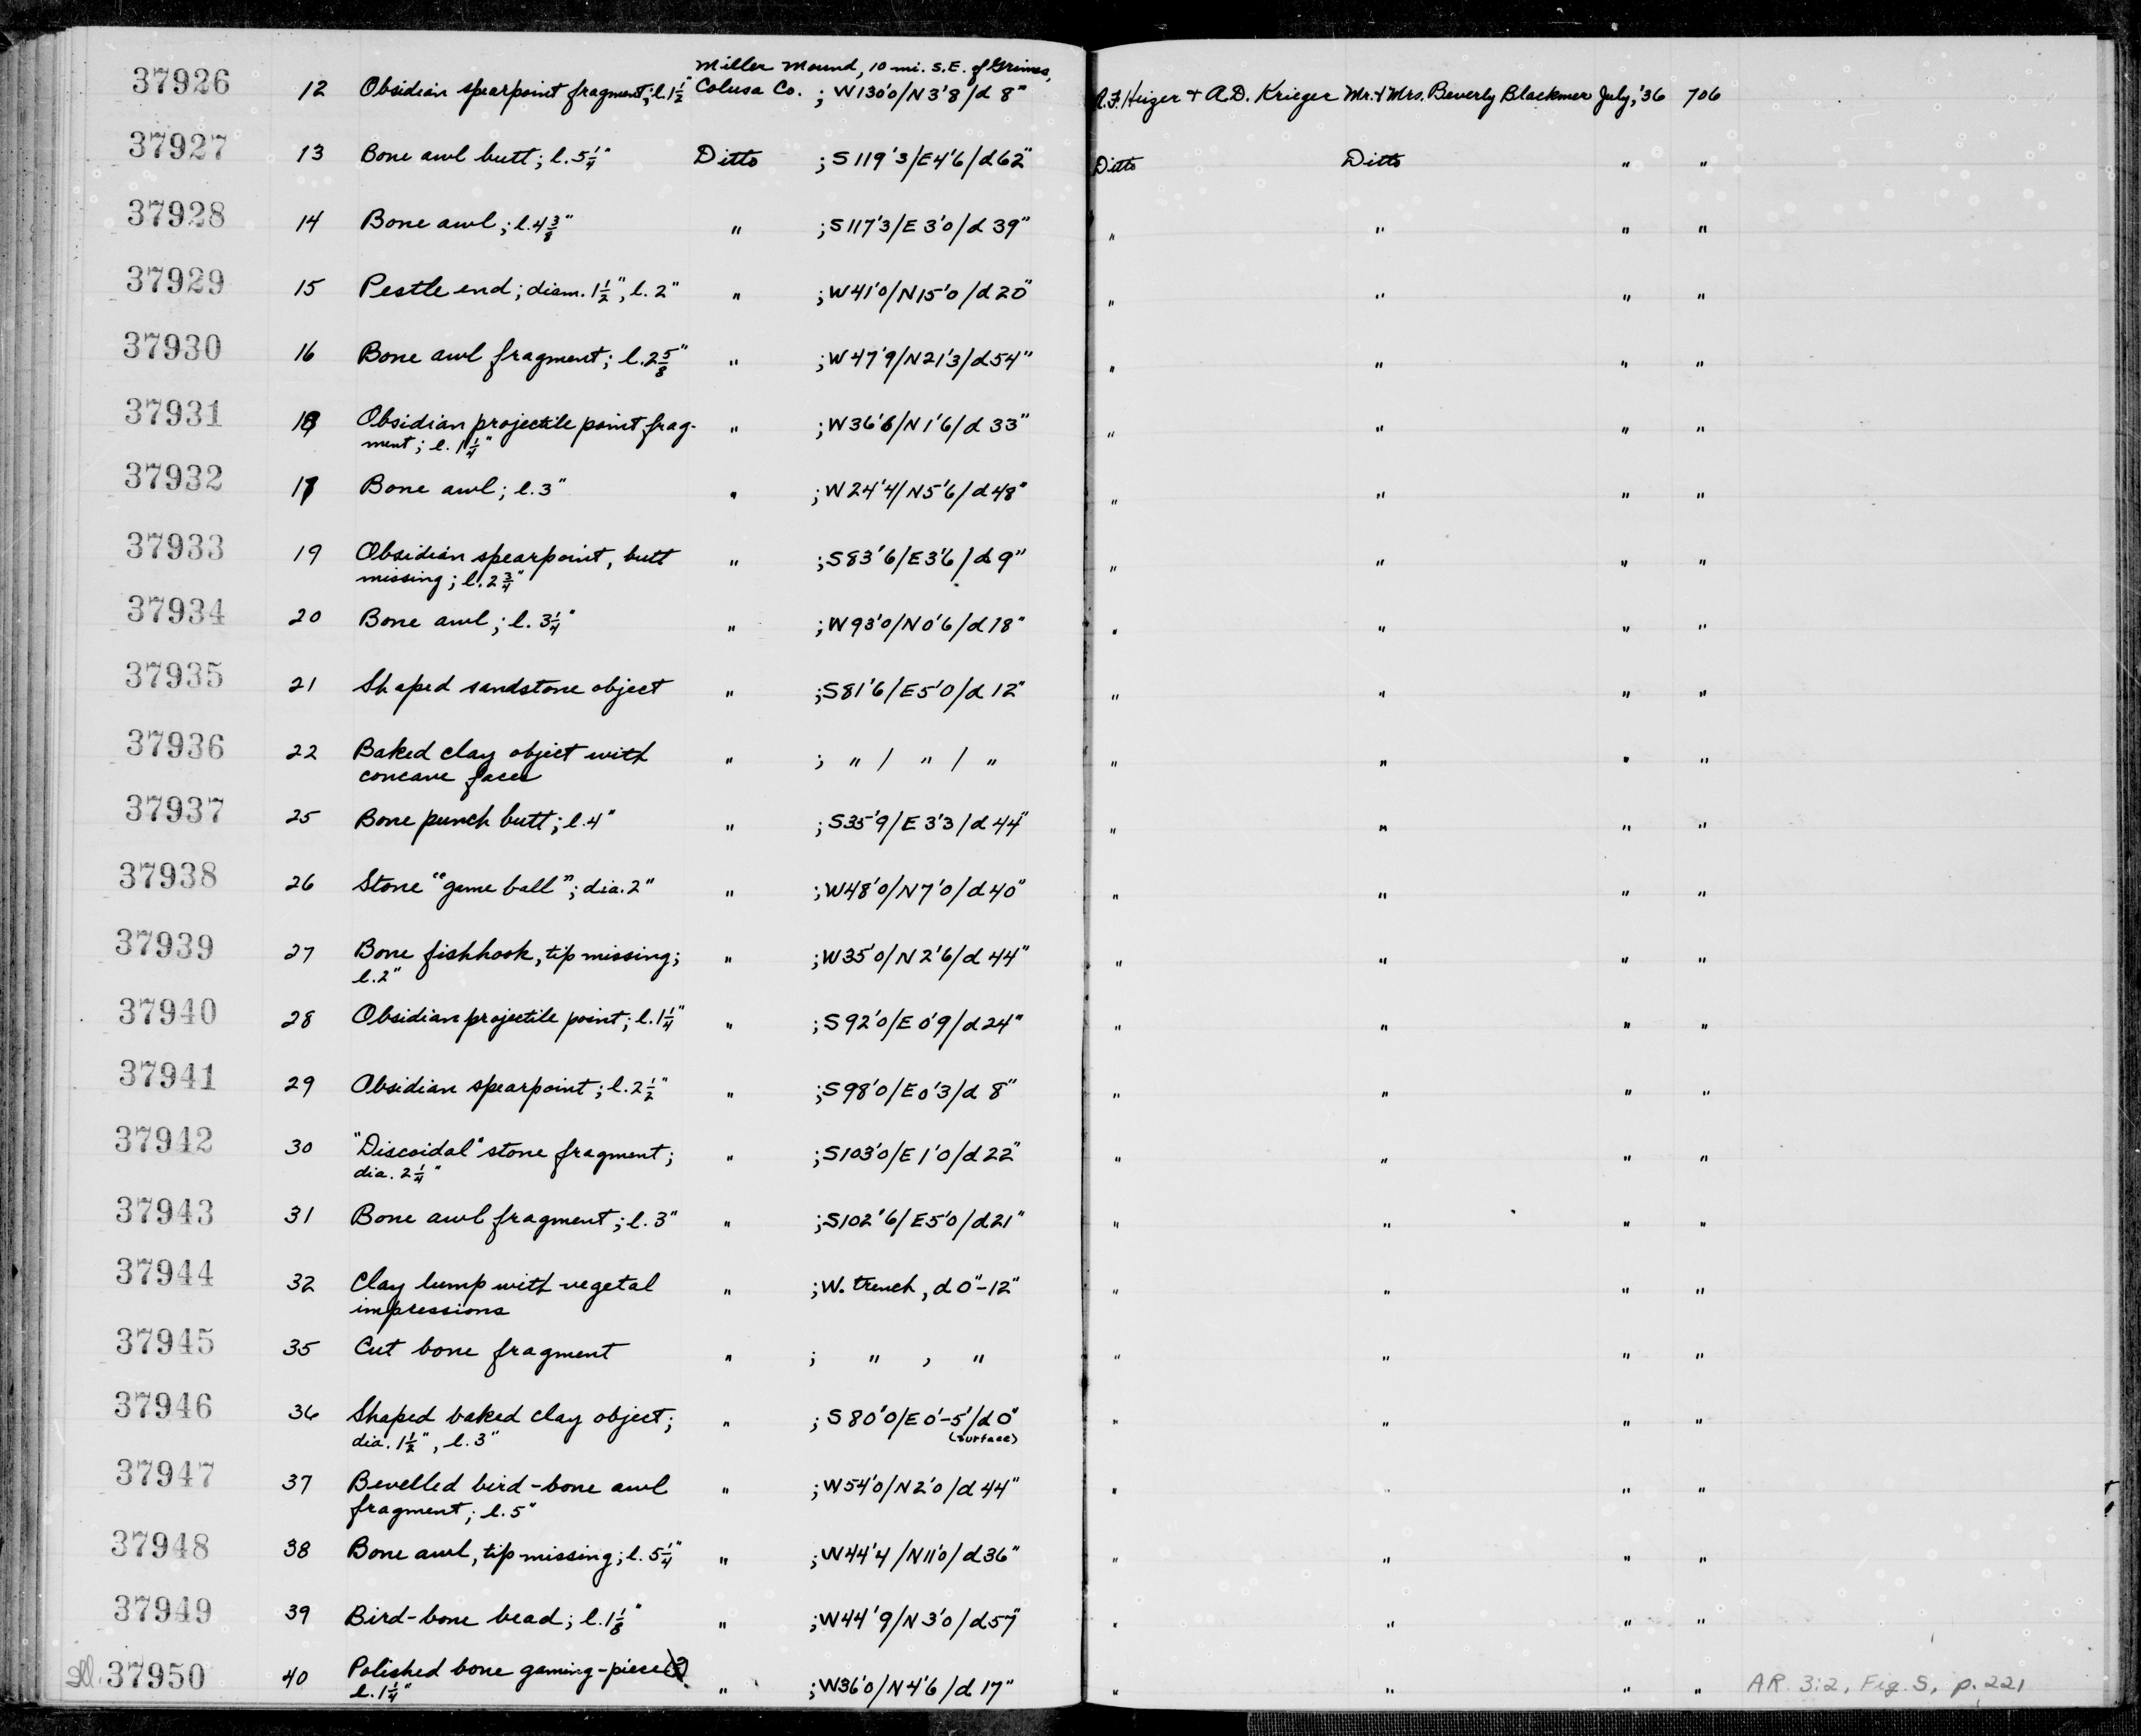 37926 12 Obsidian spearpoint fragment; l. 1½" Miller Mound, 10 mi. S.E. of Grimes, Colusa Co. ; W130'0/N3'8"/d 8" R.F. Heizer + A.D. Krieger Mr. & Mrs. Beverly Blackmer July, '36 706
37927 13 Bone awl butt; l. 5¼" Ditto ; S119'3/E4'6/d62" Ditto Ditto " "
37928 14 Bone awl; l. 4⅜" " ; S117'3/E3'0/d 39" " " " "
37929 15 Pestle end; diam. 1½", l. 2" " ; W41'0/N15'0/d20" " " " "
37930 16 Bone awl fragment; l. 2⅝" " ; W47'9/N21'3/d54" " " " "
37931 18 Obsidian projectile point frag- " ; W36'6/N1'6/d 33" " " " "
ment; l. 1¼"
37932 17 Bone awl; l. 3" " ; W24'4/N5'6/d48" " " " "
37933 19 Obsidian spearpoint, butt " ; S83'6/E3'6/d9" " " " "
missing; l. 2¾"
37934 20 Bone awl; l. 3¼" " ; W93'0/N0'6/d18" " " " "
37935 21 Shaped sandstone object " ; S81'6/E5'0/d12" " " " "
37936 22 Baked clay object with " ; " / " / " " " " "
concave faces
37937 25 Bone punch butt; l. 4" " ; S35'9/E3'3/d44" " " " "
37938 26 Stone "game ball"; dia. 2" " ; W48'0/N7'0/d40" " " " "
37939 27 Bone fishhook, tip missing; " ; W35'0/N2'6/d44" " " " "
l. 2"
37940 28 Obsidian projectile point; l. 1¼" " ; S92'0/E0'9/d24" " " " "
37941 29 Obsidian spearpoint; l. 2½" " ; S98'0/E0'3/d 8" " " " "
37942 30 "Discoidal" stone fragment; " ; S103'0/E1'0/d22" " " " "
dia. 2¼"
37943 31 Bone awl fragment; l. 3" " ; S102'6/E5'0/d21" " " " "
37944 32 Clay lump with vegetal " ; W. trench, d 0"-12" " " " "
impressions
37945 35 Cut bone fragment " ; " , " " " " "
37946 36 Shaped baked clay object; " ; S80'0/E0'-5'/d0" " " " "
dia. 1½", l. 3" (surface)
37947 37 Bevelled bird-bone awl " ; W54'0/N2'0/d44" " " " "
fragment; l. 5"
37948 38 Bone awl, tip missing; l. 5¼" " ; W44'4/N11'0/d36" " " " "
37949 39 Bird-bone bead; l. 1⅛" " ; W44'9/N3'0/d57" " " " "
Ill. 37950 40 Polished bone gaming-piece(?) " ; W36'0/N4'6/d17" " " " " AR. 3:2, Fig. S, p. 221
l. 1¼"